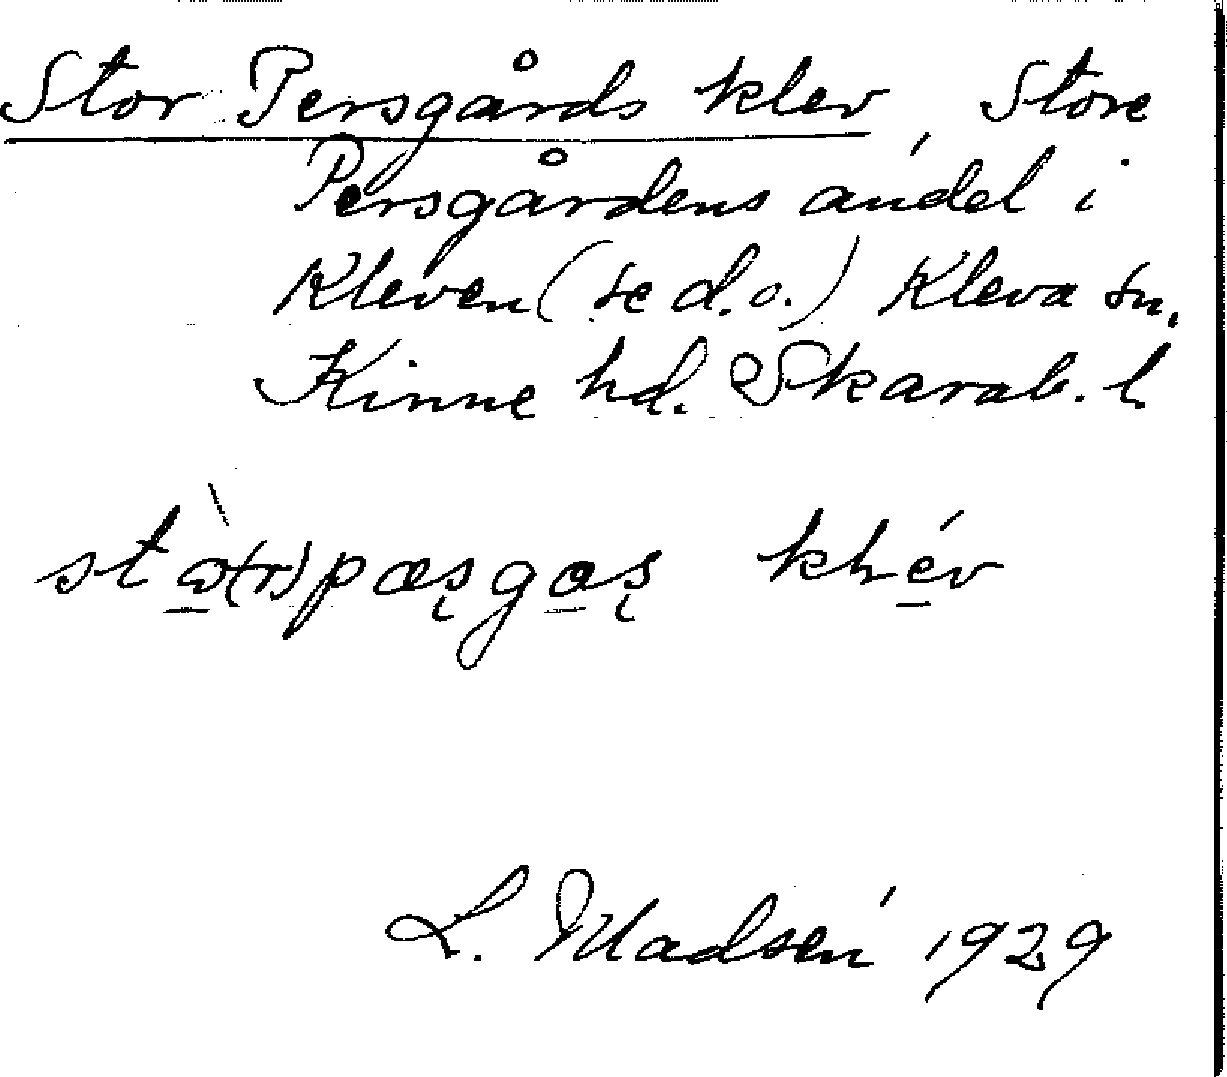 Stor Persgårds klev, Store
Persgårdens andel i
Kleven (se d.o.) Kleva sn.
Kinne hd. Skarab. l.
L. Madsén 1929